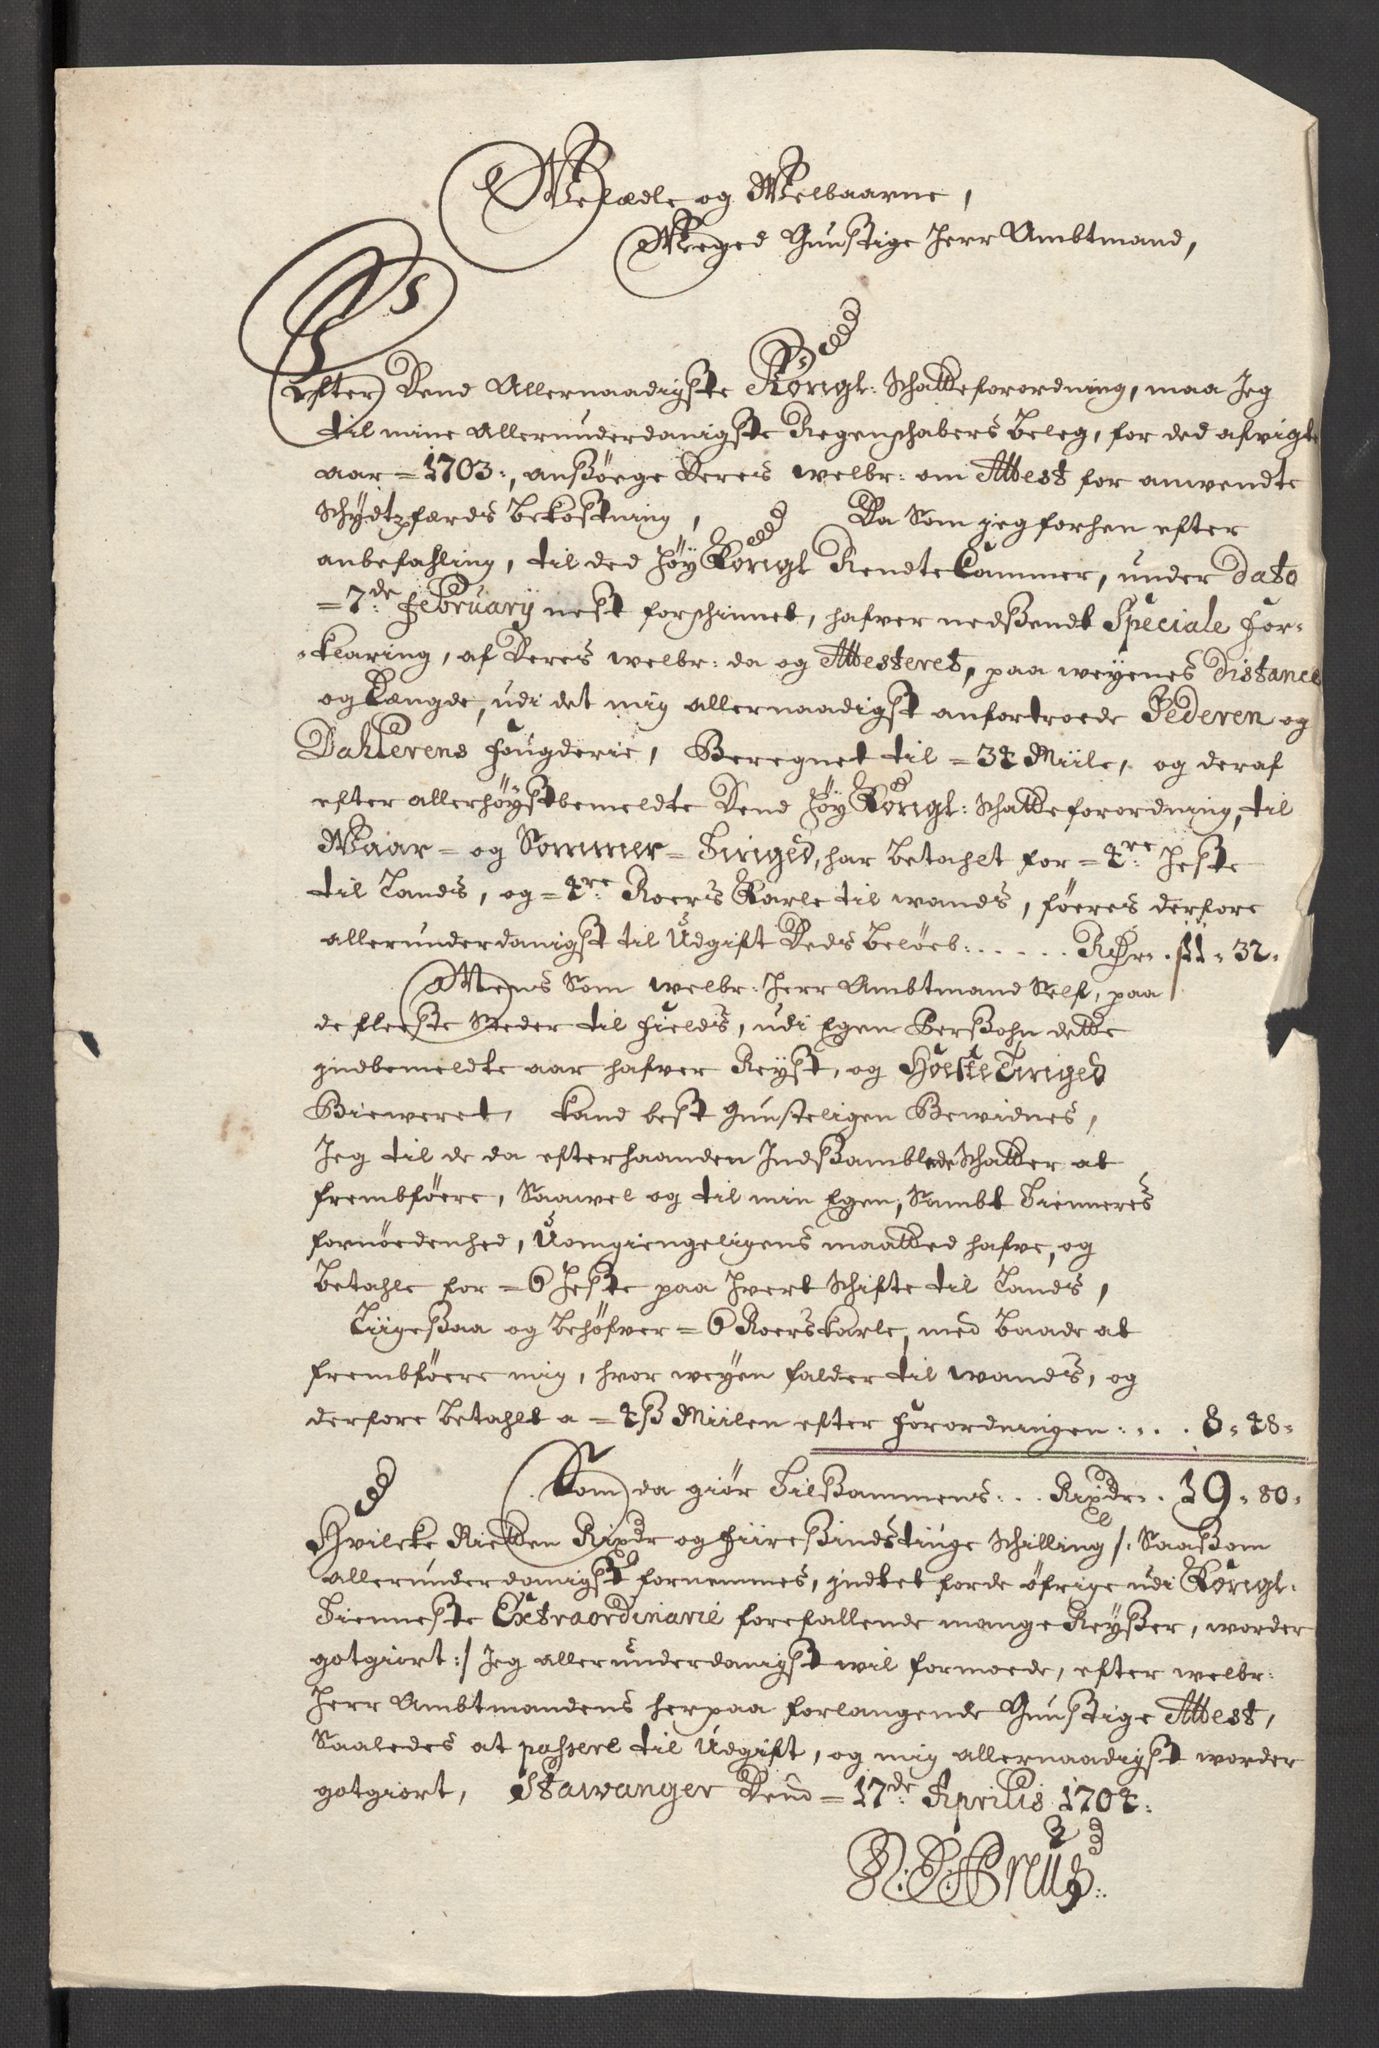 Weledle og Welbaarne,
Meged Gunstige Herr Ambtmand,
Efter Dend Allernaadigste Kongl: Schatteforordning, maa Jeg
til mine Allerunderdanigste Regenschabers Beleg, for ded afvigte
aar = 1703:, ansøege Deres welbr: om Attest for anwendte
Schydtzferds Bekostning, Da Som jeg forhen efter
anbefahling, til ded Høy Kongl Rendte Cammer, under Dato
= 7de: February nest forschinnet, hafver nedsendt Speciale For-
-klaring, af Deres welbr: da og Attesteret, paa weyenes Distance
og Længde, udi det mig allernaadigst anfortroede Jederen og
Dahlerens fougderie, Beregnet til = 34 Miile, og deraf
efter allerhøystbemeldte Dend Høy Kongl: Schatteforordning, til
Waar = og Sommer = Tinged, har betahlt for = 4re: Heste
til Lands, og = 4re: Roers Karle til wands, føeres derfore
allerunderdanigst til Udgift Deds Beløeb: . . . . . Rdr . 11 - 32 -
Mens Som welbr: Herr Ambtmand Self, paa
de fleeste Steder til Fields, udi Egen Persohn dette
indbemeldte aar hafver Reyst, og Høste Tinged
Biweret, kand best gunsteligen Bewidnes,
Jeg til de da efterhaanden Indsamblede Schatter at
frembføere, Saawel og til min Egen, Sambt Tienneres
fornøedenhed, Uomgiengeligens maatted hafve, og
Betahle for = 6 Heste paa hvert Schifte til Lands,
Liigesaa og behøfver = 6 Roerskarle, med Baade at
frembføere mig, hvor weyen falder til wands, og
derfore betahlt a = 4 ß Miilen efter Forordningen: . . . 8 - 48 -
Som da giør Tilsammens: . . Rixdr . . 19 - 80 -
Hvilcke Nietten Rixdr og Fiiresindstiuge Schilling /: Saasom
allerunderdanigst fornemmes, indtet forde øfrige udi Kongl.
Tienneste Extraordinarie forefallende mange Reyser, worder
gotgiort :/ Jeg allerunderdanigst wil formoede, efter welbr:
Herr Ambtmandens herpaa forlangende Gunstige Attest,
Saaledes at passere til Udgift, og mig allernaadigst worder
gotgiort, Stawanger Dend = 17de: Aprilis 1704: